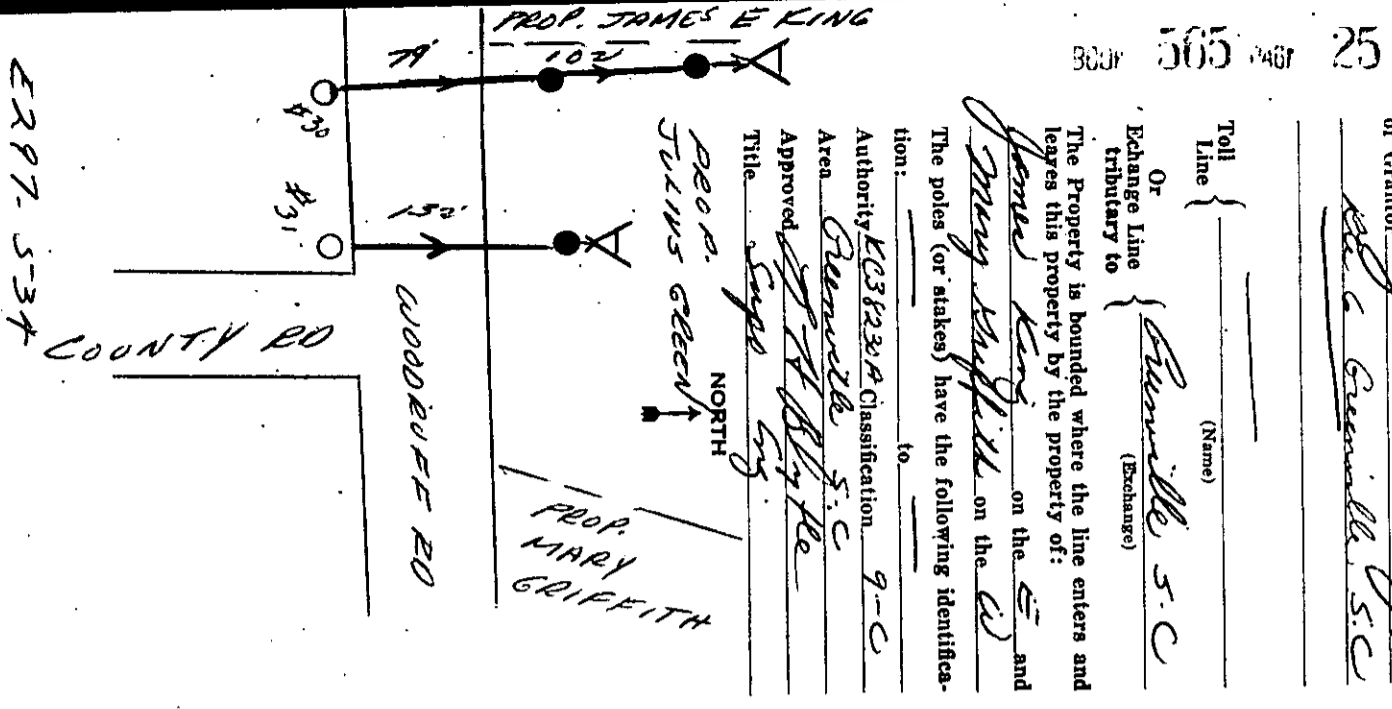 BOOK 565 PAGE 25
of Grantor
Rt 6 Greenville, S.C
Toll
Line
(Name)
Or
Echange Line
tributary to
Greenville S.C
(Exchange)
The Property is bounded where the line enters and
leaves this property by the property of:
James King on the E and
Mary Griffith on the W
The poles (or stakes) have the following identifica-
tion: to
Authority KC38230A Classification 9-C
Area Greenville S.C
Approved J H Blythe
Title Supv Eng.
PROP. JAMES E KING
79'
102
#30
#31
150'
PROP.
JULIUS GREEN
NORTH
PROP.
MARY
GRIFFITH
WOODRUFF RD
COUNTY RD
E297-534